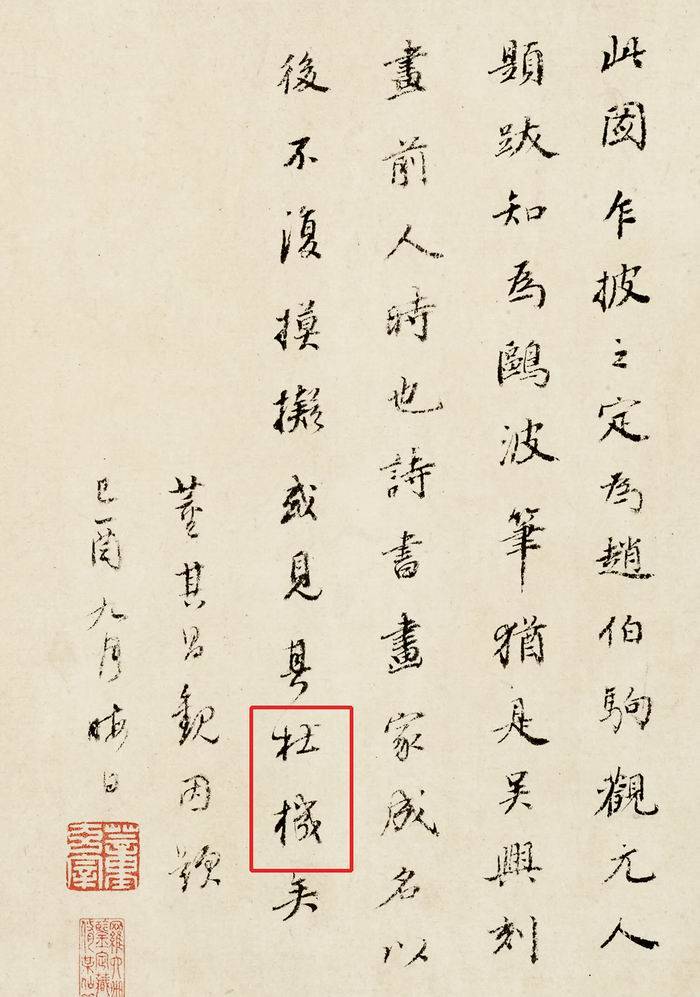 此圖乍披之定為趙伯駒觀元人
題跋知為鷗波筆猶是吳興刻
畫前人時也詩書畫家成名以
後不復摸擬或見其杜機矣
董其昌觀因題
己酉九月晦日
董玄宰